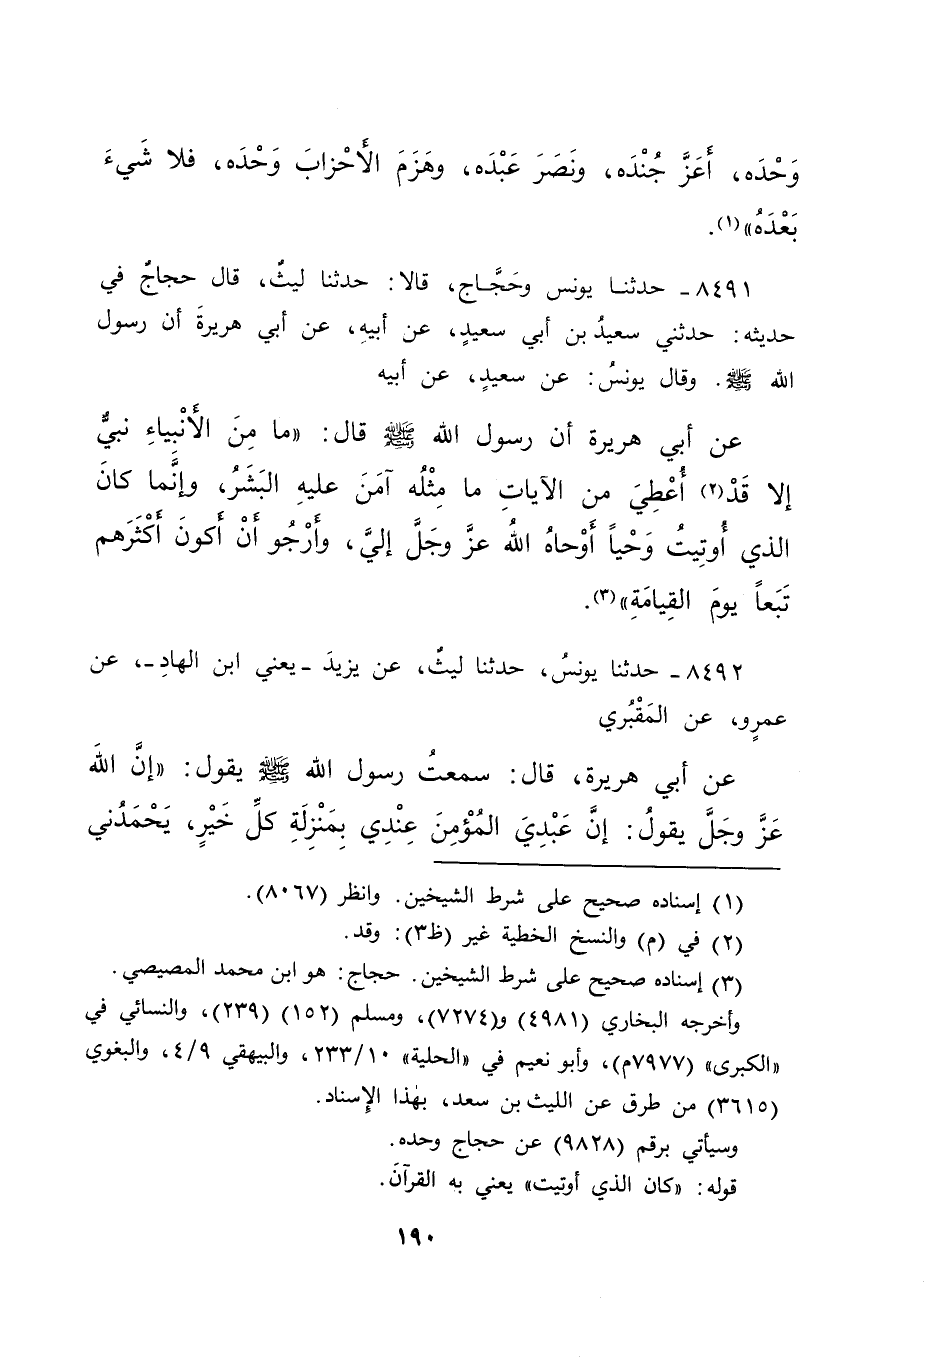 وَحْدَه، أَعَزَّ جُنْدَه، ونَصَرَ عَبْدَه، وهَزَمَ الأَحْزابَ وَحْدَه، فلا شَيءَ
بَعْدَهُ»(١).
٨٤٩١ـ حدثنـا يونس وحَجَّـاج، قالا: حدثنا ليثٌ، قال حجاجٌ في
حديثه: حدثني سعيدُ بن أبي سعيدٍ، عن أبيهِ، عن أبي هريرةَ أن رسول
الله ﷺ. وقال يونسُ: عن سعيدٍ، عن أبيه
عن أبي هريرة أن رسول الله ﷺ قال: «ما مِنَ الأَنْبِياءِ نبيٌّ
إلا قَدْ(٢) أُعْطِيَ من الآياتِ ما مِثْلُه آمَنَ عليهِ البَشَرُ، وإنَّما كانَ
الذي أُوتِيتُ وَحْياً أَوْحاهُ اللهُ عزَّ وجَلَّ إليَّ، وأَرْجُو أَنْ أَكونَ أَكْثَرَهم
تَبَعاً يومَ القِيامَةِ»(٣).
٨٤٩٢ـ حدثنا يونسُ، حدثنا ليثٌ، عن يزيدَ ـيعني ابن الهادِـ، عن
عمرٍو، عن المَقْبُري
عن أبي هريرة، قال: سمعتُ رسول الله ﷺ يقول: «إنَّ اللهَ
عَزَّ وجَلَّ يقولُ: إنَّ عَبْدِيَ المُؤْمِنَ عِنْدِي بِمَنْزِلَةِ كلِّ خَيْرٍ، يَحْمَدُني
(١) إسناده صحيح على شرط الشيخين. وانظر (٨٠٦٧).
(٢) في (م) والنسخ الخطية غير (ظ٣): وقد.
(٣) إسناده صحيح على شرط الشيخين. حجاج: هو ابن محمد المصيصي.
وأخرجه البخاري (٤٩٨١) و(٧٢٧٤)، ومسلم (١٥٢) (٢٣٩)، والنسائي في
«الكبرى» (٧٩٧٧م)، وأبو نعيم في «الحلية» ٢٣٣/١٠، والبيهقي ٤/٩، والبغوي
(٣٦١٥) من طرق عن الليث بن سعد، بهٰذا الإسناد.
وسيأتي برقم (٩٨٢٨) عن حجاج وحده.
قوله: «كان الذي أوتيت» يعني به القرآنَ.
١٩٠